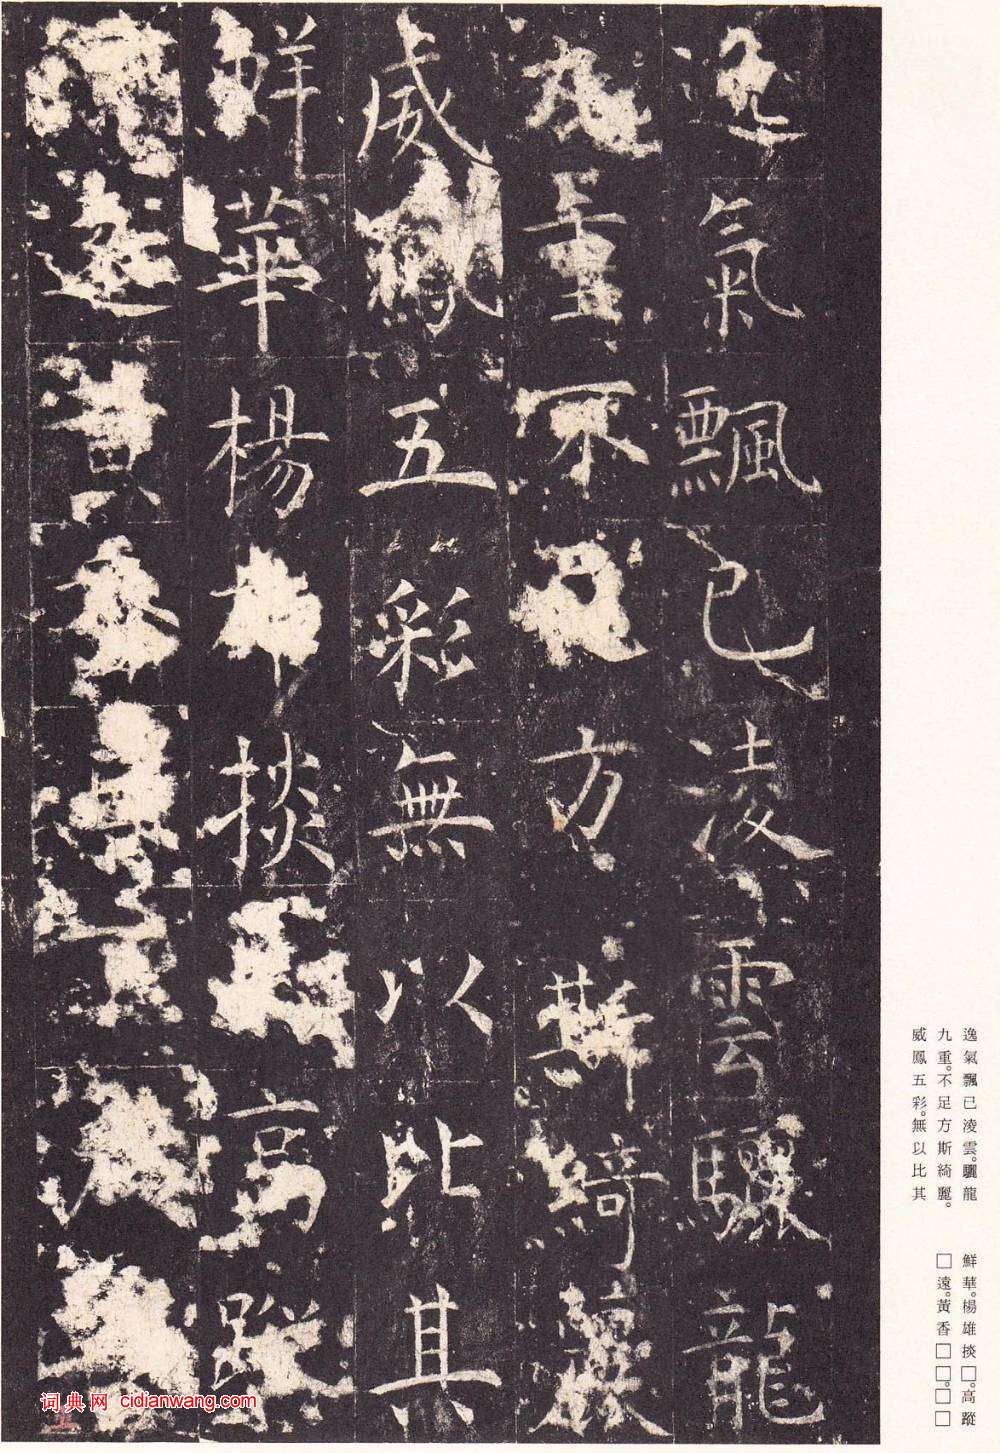 逸氣飄已淩雲驪龍
九重不足方斯綺麗
威鳳五彩無以比其
鮮華楊雄掞高蹤
遠黃香
逸氣飄已淩雲。驪龍
九重。不足方斯綺麗。
威鳳五彩。無以比其
鮮華。楊雄掞□。高蹤
□遠。黃香□□。□□
词典网 cidianwang.com